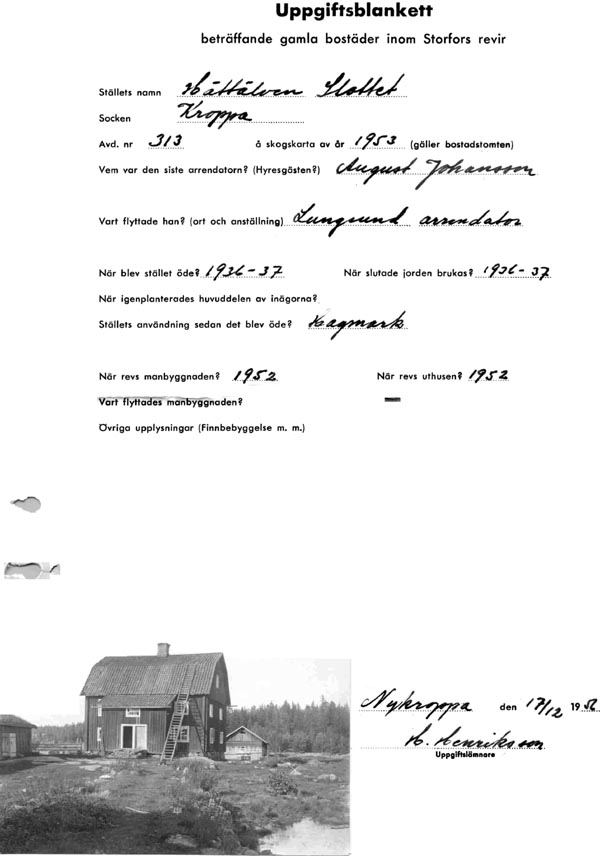 Uppgiftsblankett
beträffande gamla bostäder inom Storfors revir
Ställets namn Hättälven Slottet
Socken Kroppa
Avd. nr 313 å skogskarta av år 1953 (gäller bostadstomten)
Vem var den siste arrendatorn? (Hyresgästen?) August Johansson
Vart flyttade han? (ort och anställning) Lungsund arrendator
När blev stället öde? 1936-37 När slutade jorden brukas? 1936-37
När igenplanterades huvuddelen av inägorna?
Ställets användning sedan det blev öde? Hagmark
När revs manbyggnaden? 1952 När revs uthusen? 1952
Vart flyttades manbyggnaden?
Övriga upplysningar (Finnbebyggelse m. m.)
Nykroppa den 17/12 19
H. Henriksson
Uppgiftslämnare